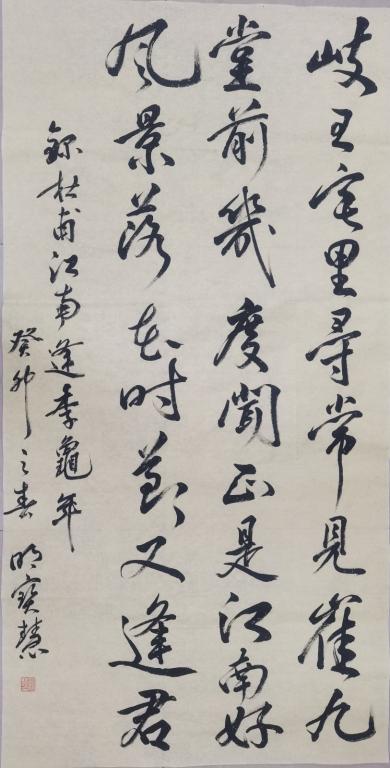 岐王宅里尋常見崔九
堂前幾度聞正是江南好
风景落花时節又逢君
錄杜甫江南逢李龜年
癸卯之春 明寶慧